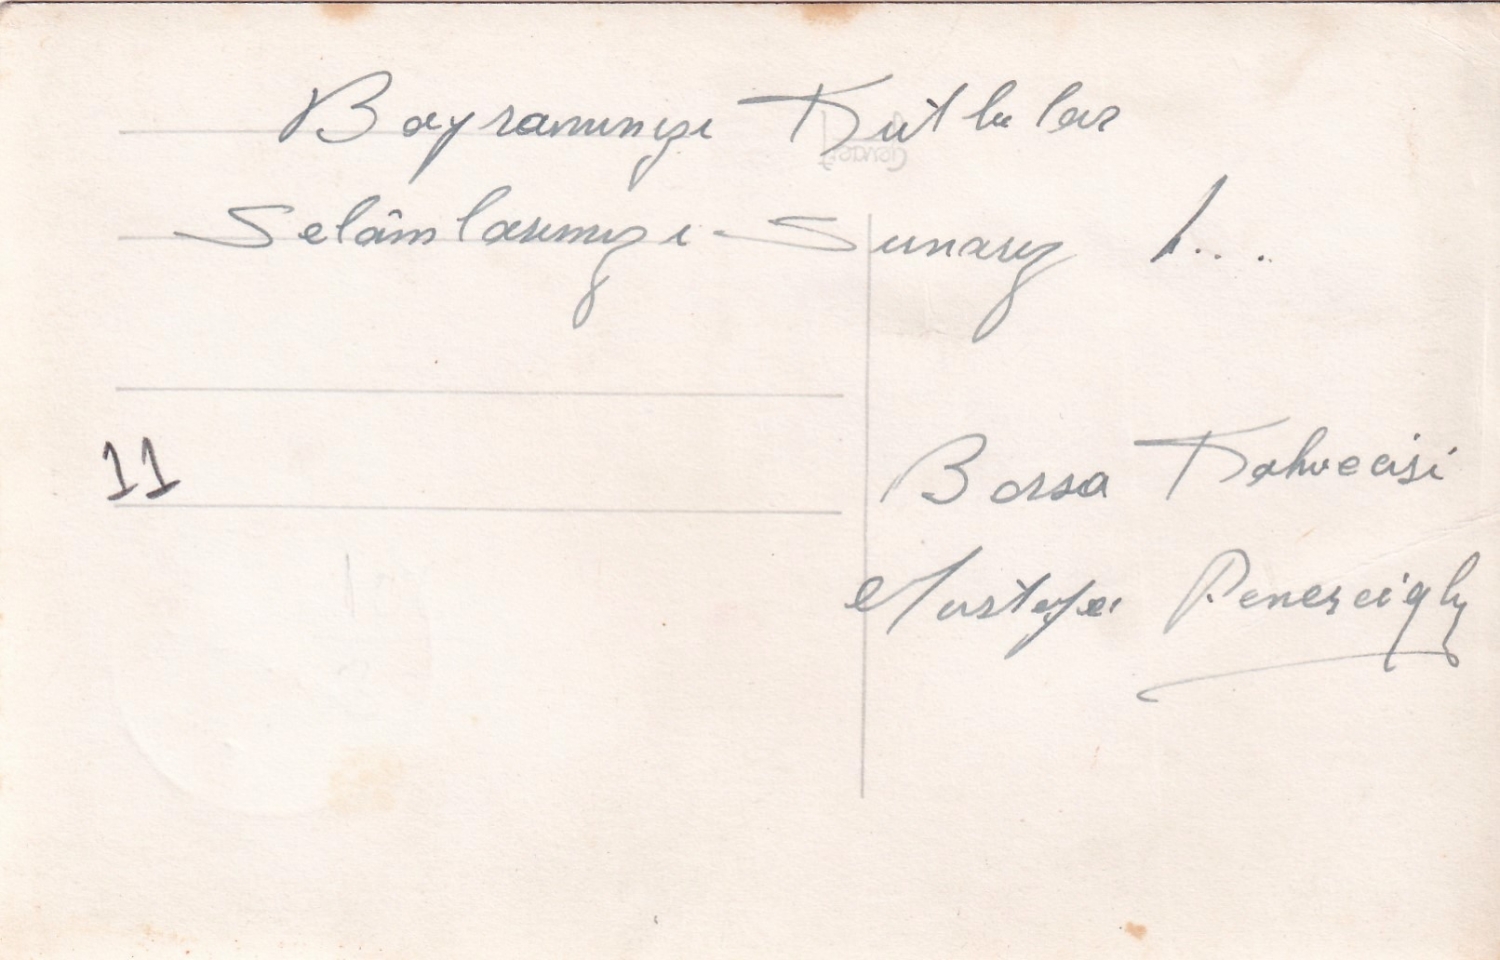 Bayramınızı Kutlular
Selâmlarımızı Sunarız !...
11
Borsa Kahvecisi
Mustafa
Gevaert